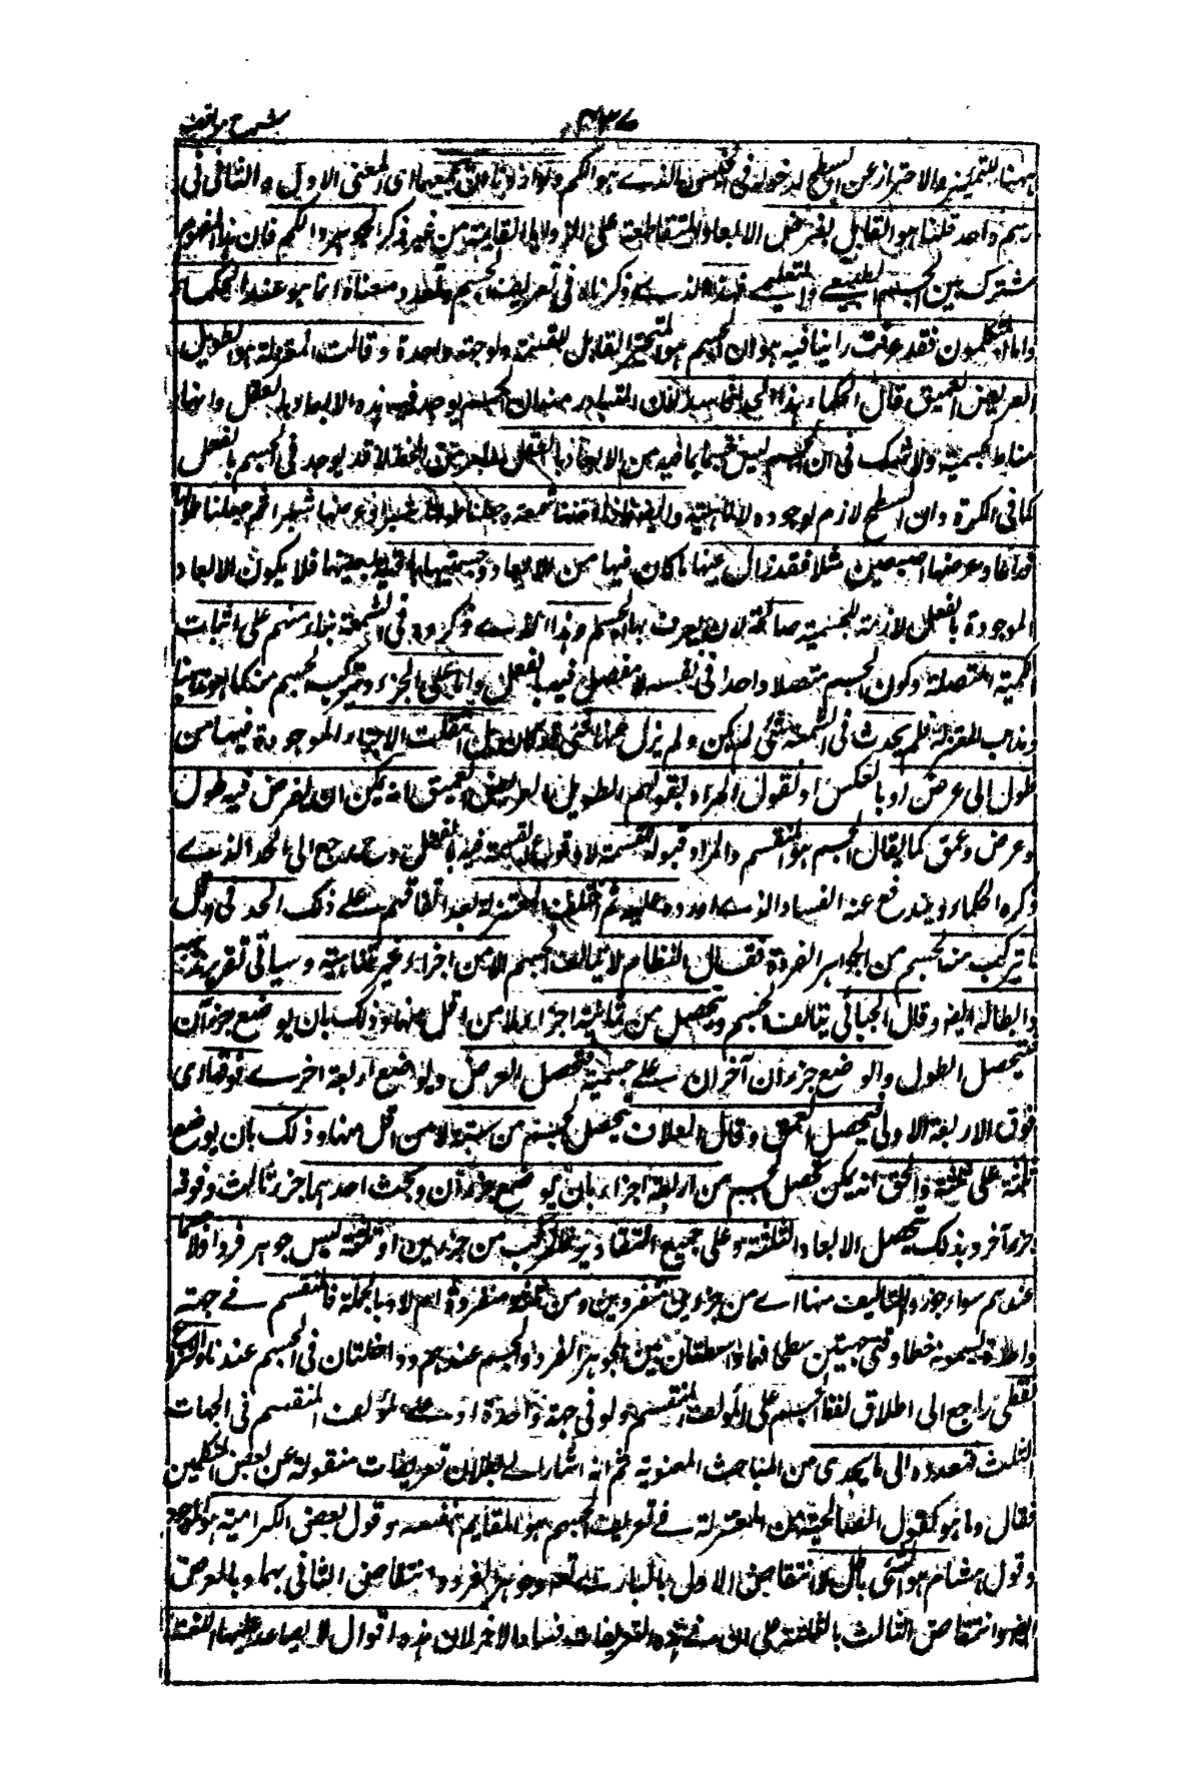 شرح مواقف
٤٣٧
ههنا للتمييز والاحتراز عن السطح لدخوله في الجنس الذى هو الكم ولو اردنا ان نجمعهما اى المعنى الاول والثاني في
رسم واحد قلنا هو القابل لفرض الابعاد المتقاطعة على الزوايا القايمة من غير ذكر الجوهر والكم فان هذا المفهوم
مشترك بين الجسم الطبيعي والتعليمي فهذا الذى ذكرناه في تعريف الجسم وتعدد معناه انما هو عند الحكماء
واما المتكلمون فقد عرفت راينا فيه هو ان الجسم هو المتحيز القابل للقسمة ولو جهة واحدة وقالت المعتزلة هو الطويل
العريض العميق قال الحكماء هذا الحد فاسد لان المتبادر منه ان الجسم يوجد فيه هذه الابعاد بالفعل وانها
مناط الجسمية ولا شك في ان الجسم ليس جسما بما فيه من الابعاد بالفعل لما مر من ان الخط لا قد يوجد في الجسم بالفعل
كما في الكرة وان السطح لازم لوجوده لا لماهيته وايضا فاذا اخذنا شمعة وجعلنا طولها شبرا وعرضها شبرا ثم جعلنا طولها
ذراعا وعرضها اصبعين مثلا فقد زال عنها ما كان فيها من الابعاد وجسميتها باقية بعينها فلا يكون الابعاد
الموجودة بالفعل لازمة للجسمية صالحة لان يعرف بها الجسم وهذا الذى ذكروه في الشمعة بناء منهم على اثبات
الكمية المتصلة وكون الجسم متصلا واحدا في نفسه لا مفصل فيه بالفعل واما على الجزء وتركب الجسم منه كما هو مذهبنا
ومذهب المعتزلة فلم يحدث في الشمعة شئ لم يكن ولم يزل عنها شئ قد كان بل انتقلت الاجزاء الموجودة فيها من
طول الى عرض او بالعكس او نقول المراد بقولهم الطويل العريض العميق انه يمكن ان يفرض فيه طول
وعرض وعمق كما يقال الجسم هو المنقسم والمراد قبوله للقسمة لا وقوع القسمة فيه بالفعل وح يرجع الى الحد الذى
ذكره الحكماء ويندفع عنه الفساد الذى اوردوه عليه ثم اختلف المعتزلة بعد اتفاقهم على ذلك الحد في اقل
ما يتركب منه الجسم من الجواهر الفردة فقال النظام لا يتألف الجسم الا من اجزاء غير متناهية وسياتي تقرير مذهبه
وابطاله ايضا وقال الجبائي يتالف الجسم ويتحصل من ثمانية اجزاء لا من اقل منها وذلك بان يوضع جزءآن
فيحصل الطول ويوضع جزءان آخران على جنبه فيحصل العرض ويوضع اربعة اخرى فوقها اى
فوق الاربعة الاولى فيحصل العمق وقال العلاف يحصل الجسم من ستة لا من اقل منها وذلك بان يوضع
ثلثة على ثلثة والحق انه يمكن تحصل الجسم من اربعة اجزاء بان يوضع جزءان وبجنب احدهما جزء ثالث وفوقه
جزء آخر وبذلك يتحصل الابعاد الثلثة وعلى جميع التقادير فالمركب من جزءين او ثلثة ليس جوهر فردا ولا جسما
عندهم سواء جوزوا التاليف منها اى من جزءين منفردين ومن ثلثة منفردة ام لا وبالجملة فالمنقسم في جهة
واحدة يسمونه خطا وفي جهتين سطحا فهما واسطتان بين الجوهر الفرد والجسم عندهم وداخلتان في الجسم عندنا والنزاع
لفظي راجع الى اطلاق لفظ الجسم على المؤلف المنقسم ولو في جهة واحدة او على المؤلف المنقسم في الجهات
الثلث فتعدده الى ما يجدى من المباحث المعنوية ثم انه اشار الى بطلان تعريفات منقولة عن بعض المتكلمين
فقال وما هو كقول الصالحية من المعتزلة في تعريف الجسم هو القايم بنفسه وقول بعض الكرامية هو الموجود
وقول هشام هو الشئ باطل لانتقاض الاول بالبارى تعالى وجوهر الفرد وانتقاض الثاني بهما وبالعرض
ايضا وانتقاض الثالث بالثلثة على ان في هذه التعريفات فسادا آخر لان هذه اقوال لا يساعد عليها اللغة